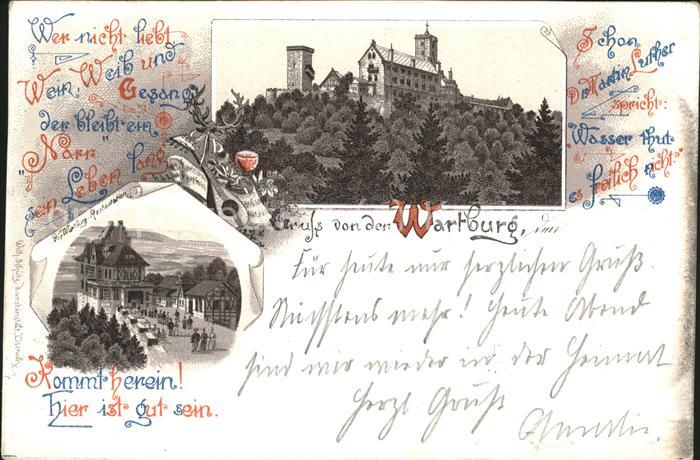 Wer nicht liebt
Wein, Weib und
Gesang,
der bleibt ein
"Narr"
sein Leben lang
Schon
Dr. Martin Luther
spricht:
"Wasser thut
es freilich nicht"
Die Wartburg-Restauration
Gruss von der Wartburg, den
Für heute nur herzlichen Gruß.
Nächstens mehr! Heute Abend
sind wir wieder in der Heimat
Herzl. Gruß
Amalie.
Kommt herein!
Hier ist gut sein.